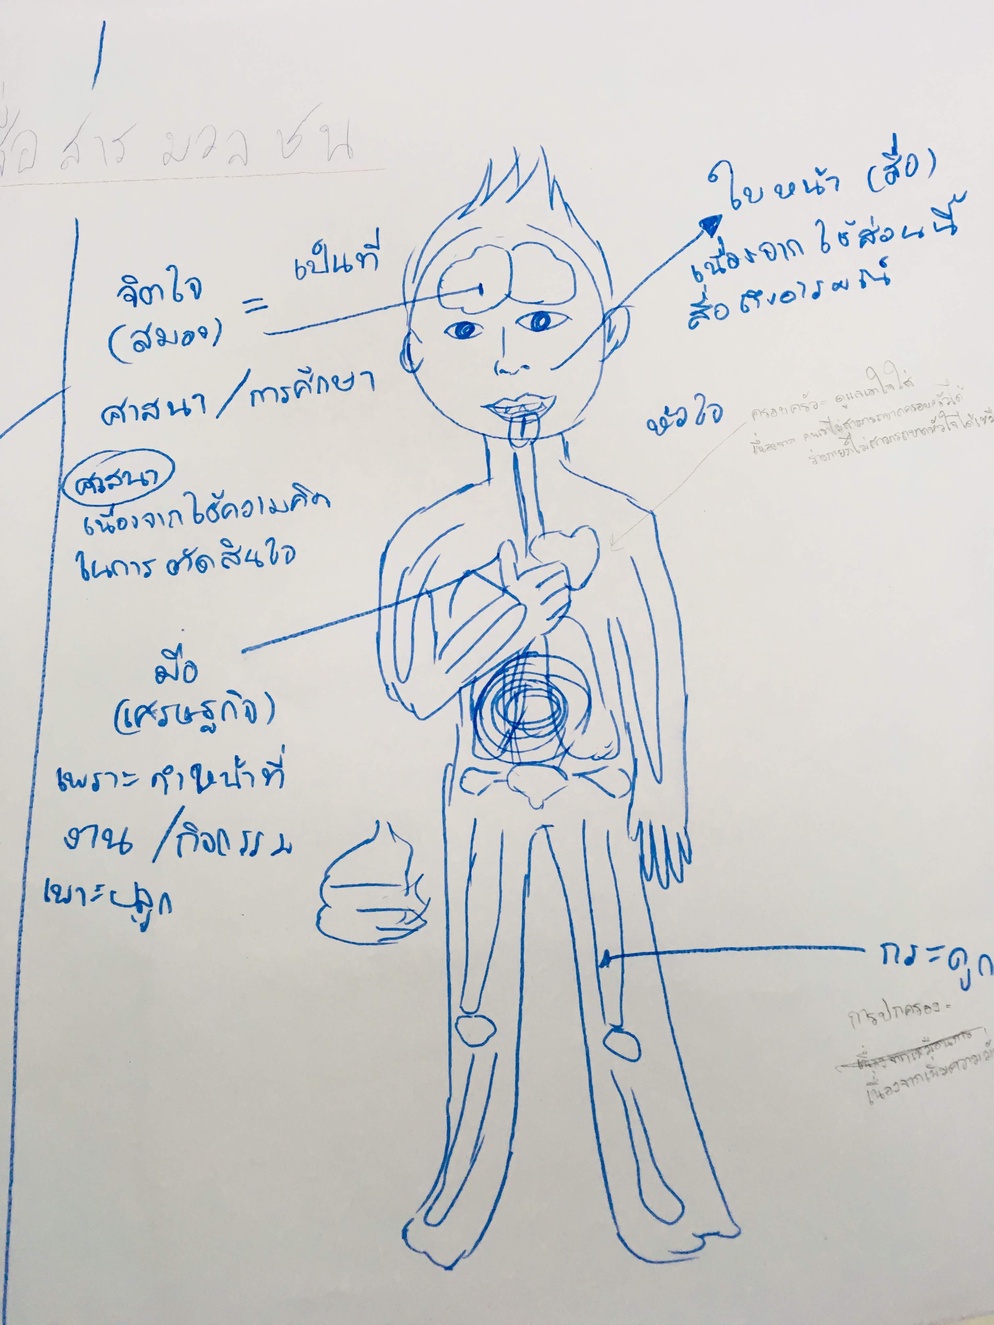 สื่อสารมวลชน
ใบหน้า (สื่อ)
เนื่องจาก ใช้ส่วนนี้
สื่อถึงอารมณ์
จิตใจ = เป็นที่
(สมอง)
ศาสนา / การศึกษา
ศาสนา
เนื่องจากใช้ความคิด
ในการตัดสินใจ
หัวใจ
ครอบครัว = ดูแลเอาใจใส่
มือ
(เศรษฐกิจ)
เพราะทำหน้าที่
งาน / กิจกรรม
เพาะปลูก
กระดูก
การปกครอง =